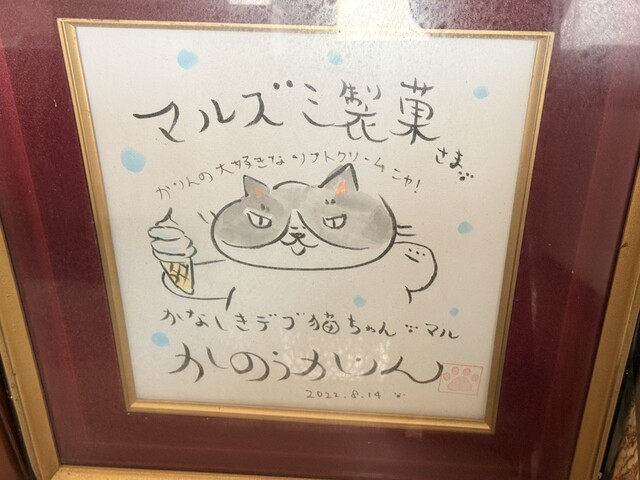 マルズミ製菓さま
かりんの大好きなソフトクリームニャ!
かなしきデブ猫ちゃん マル
かのうかりん
2022.8.14